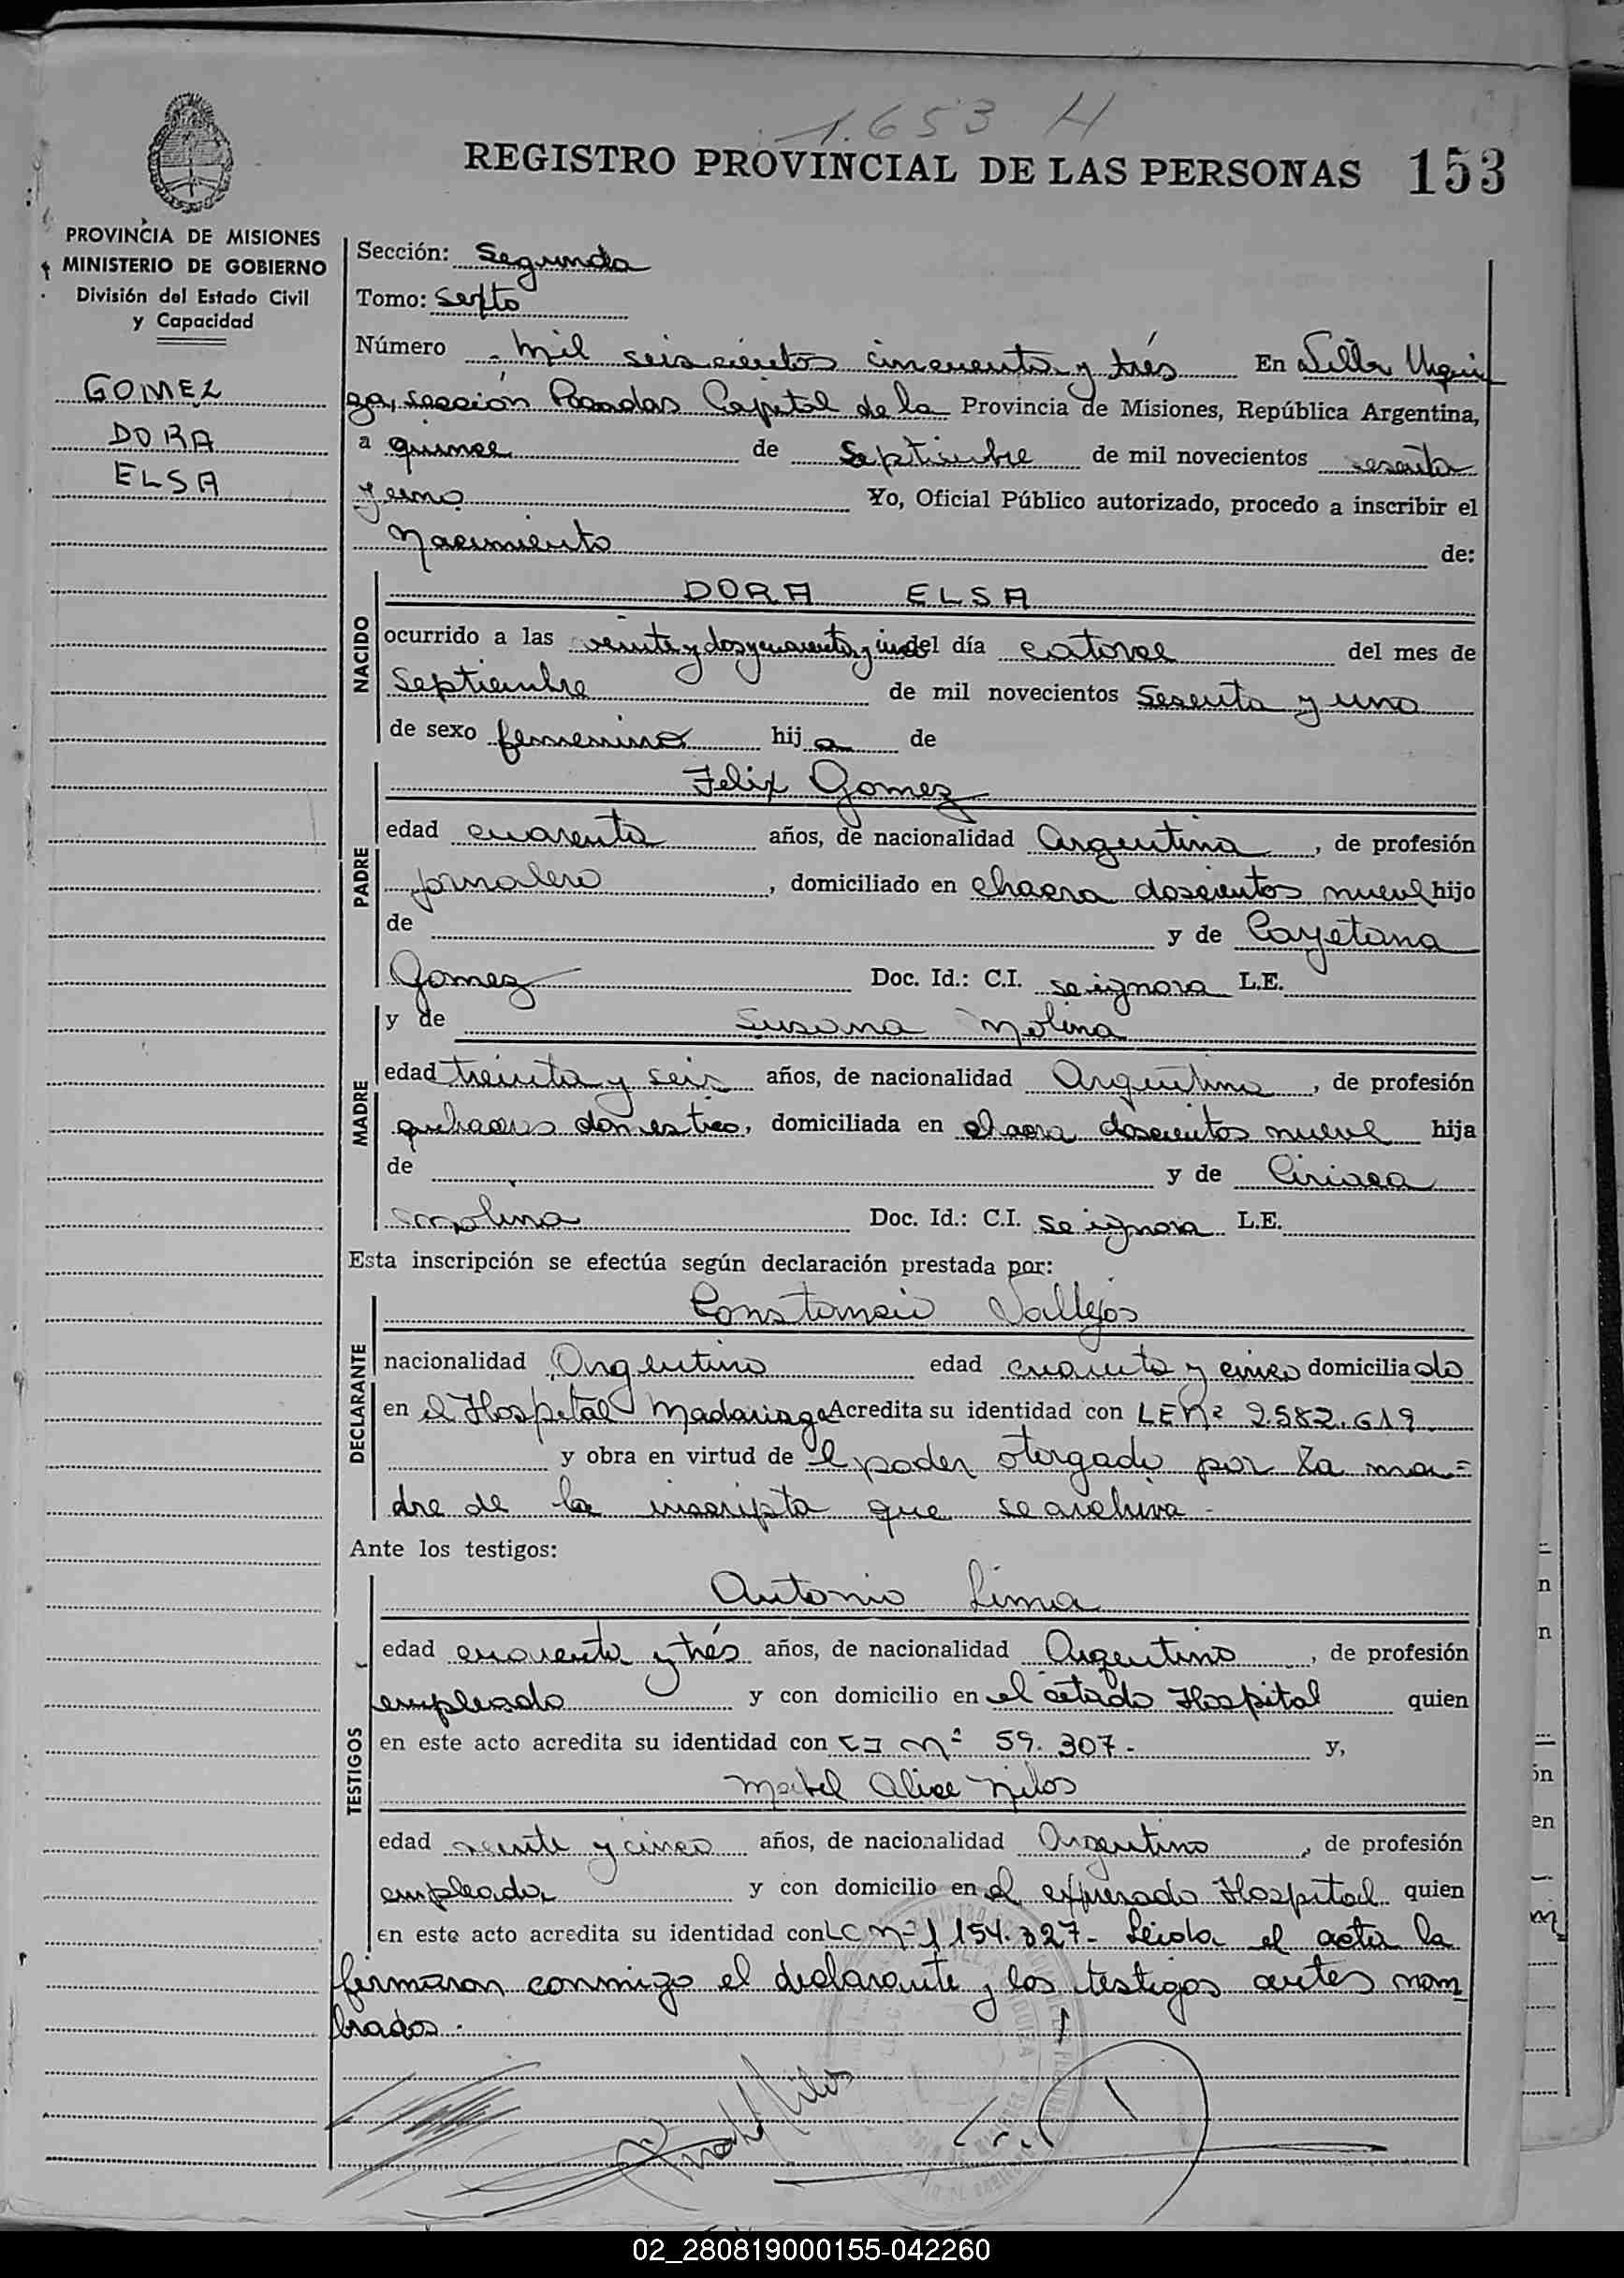 1.653 H
REGISTRO PROVINCIAL DE LAS PERSONAS 153
PROVINCIA DE MISIONES
MINISTERIO DE GOBIERNO
División del Estado Civil
y Capacidad
GOMEZ
DORA
ELSA
Sección: Segunda
Tomo: Sexto
Número mil seiscientos cincuenta y trés En Villa Urqui
za, sección Posadas Capital de la Provincia de Misiones, República Argentina,
a quince de Septiembre de mil novecientos sesenta
y uno Yo, Oficial Público autorizado, procedo a inscribir el
Nacimiento de:
NACIDO
DORA ELSA
ocurrido a las veinte y dos y cuarenta y del día catorce del mes de
Septiembre de mil novecientos Sesenta y uno
de sexo femenino hija de
PADRE
Felix Gomez
edad cuarenta años, de nacionalidad Argentina, de profesión
jornalero, domiciliado en chacra doscientos nueve hijo
de y de Cayetana
Gomez Doc. Id.: C.I. se ignora L.E.
MADRE
y de Susana Molina
edad treinta y seis años, de nacionalidad Argentina, de profesión
quehaceres domestico, domiciliada en chacra doscientos nueve hija
de y de Ciriaca
Molina Doc. Id.: C.I. se ignora L.E.
Esta inscripción se efectúa según declaración prestada por:
DECLARANTE
Constancio Vallejos
nacionalidad Argentino edad cuarenta y cinco domiciliado
en el Hospital Madariaga Acredita su identidad con LE Nº 2.582.619
y obra en virtud de el poder otorgado por la ma=
dre de la inscripta que se archiva -
Ante los testigos:
TESTIGOS
Antonio Lima
edad cuarenta y trés años, de nacionalidad Argentino, de profesión
empleado y con domicilio en el citado Hospital quien
en este acto acredita su identidad con CI nº 59.307.- y,
Mabel Alice Nilos
edad veinte y cinco años, de nacionalidad Argentina, de profesión
empleada y con domicilio en el expresado Hospital quien
en este acto acredita su identidad con LC nº 1154.327.- Leida el acta la
firmaron conmigo el declarante y los testigos antes nom
brados.
02_280819000155-042260